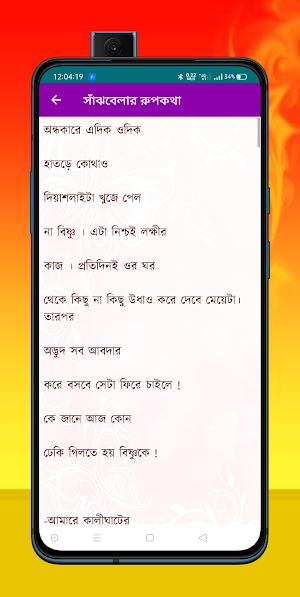 12:04:19
0.22
34%
সাঁঝবেলার রুপকথা
অন্ধকারে এদিক ওদিক
হাতড়ে কোথাও
দিয়াশলাইটা খুজে পেল
না বিষ্ণু । এটা নিশ্চই লক্ষীর
কাজ । প্রতিদিনই ওর ঘর
থেকে কিছু না কিছু উধাও করে দেবে মেয়েটা।
তারপর
অদ্ভুদ সব আবদার
করে বসবে সেটা ফিরে চাইলে !
কে জানে আজ কোন
ঢেকি গিলতে হয় বিষ্ণুকে !
-আমারে কালীঘাটের